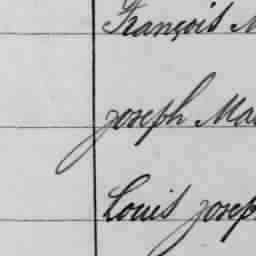 François
Joseph Ma
Louis Josep